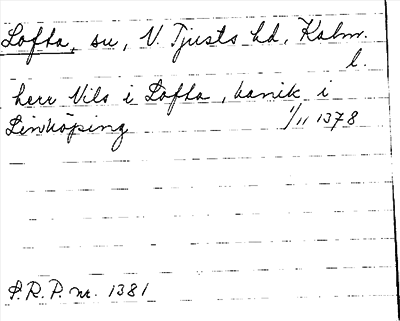 Lofta, sn, N. Tjusts hd, Kalm.
l.
herr Nils i Lofta, kanik i
Linköping 1/11 1378
S.R.P. nr. 1381